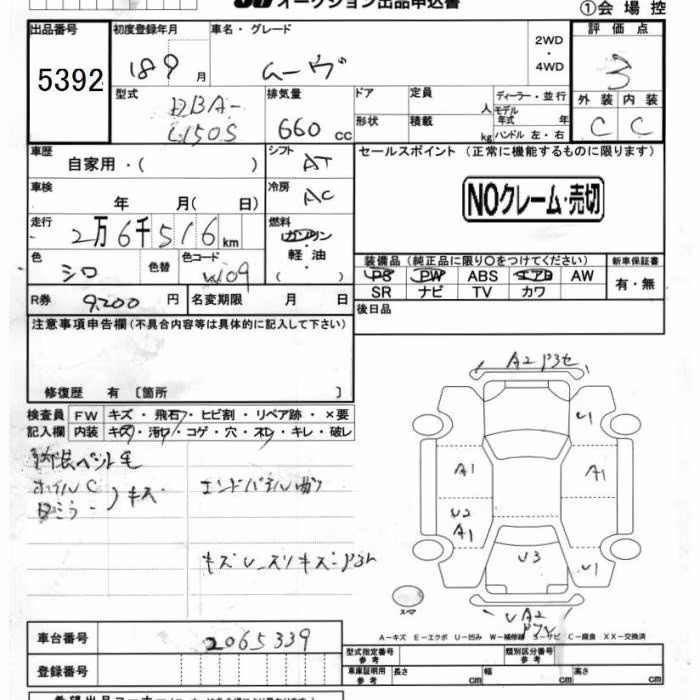 オークション出品申込書
①会場控
出品番号 初度登録年月 車名・グレード 2WD・4WD 評価点
5392 18 9 月 ムーヴ 3
型式 排気量 ドア 定員 人 ディーラー・並行 外装 内装
DBA-L150S 660 cc 形状 積載 kg モデル年式 年 ハンドル 左・右 C C
車歴 自家用・( ) シフト AT セールスポイント (正常に機能するものに限ります)
車検 年 月( 日) 冷房 AC NOクレーム・売切
走行 2万6千516km 燃料 ガソリン 軽油 ( )
装備品(純正品に限り○をつけてください) 新車保証書
色 シロ 色替 色コード W09 PS PW ABS エアB AW 有・無
SR ナビ TV カワ
R券 9,200円 名変期限 月 日 後日品
注意事項申告欄(不具合内容等は具体的に記入して下さい)
修復歴 有 〔箇所 〕
検査員 FW キズ・飛石・ヒビ割・リペア跡・×要
記入欄 内装 キズ・汚れ・コゲ・穴・スレ・キレ・破レ
ホイルC
キズ
エンドパネル
A2
U1
A1
A1
U2
A1
U3
U1
スペア
A2
A−キズ E−エクボ U−凹み W−補修跡 S−サビ C−腐食 XX−交換済
車台番号 2065339 型式指定番号 参考 類別区分番号 参考
登録番号 車庫証明用 参考 長さ cm 幅 cm 高さ cm